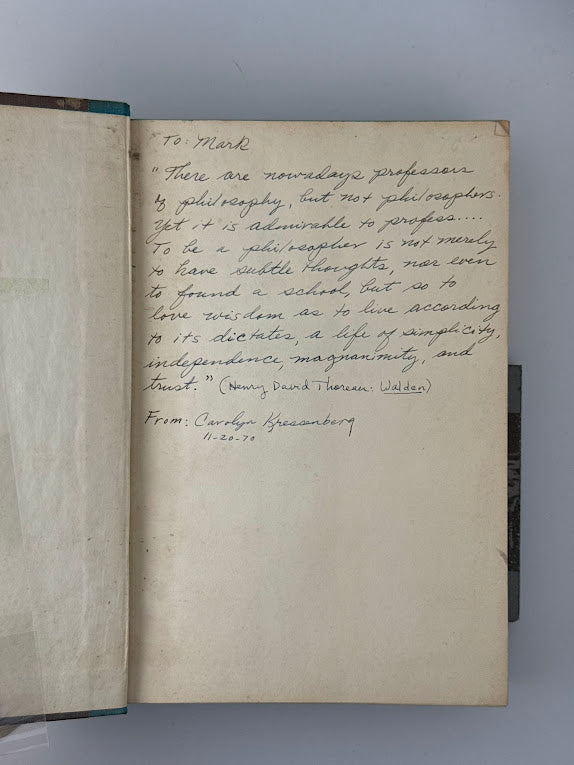 To: Mark
"There are nowadays professors
of philosophy, but not philosophers.
Yet it is admirable to profess....
To be a philosopher is not merely
to have subtle thoughts, nor even
to found a school, but so to
love wisdom as to live according
to its dictates, a life of simplicity,
independence, magnanimity, and
trust." (Henry David Thoreau: Walden)
From: Carolyn Kressenberg
11-20-70